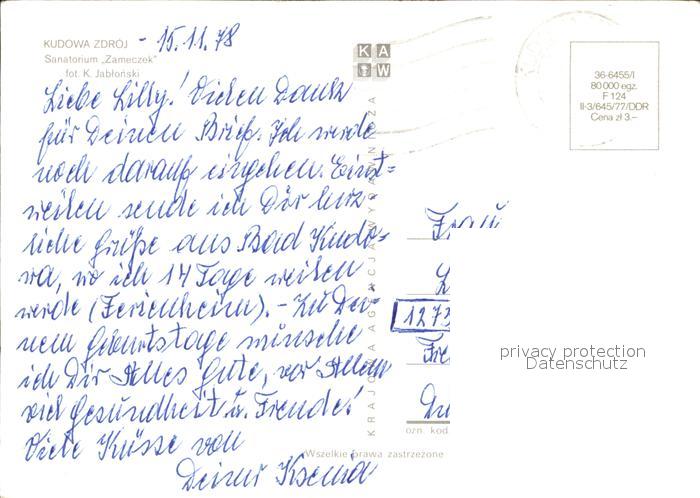 KUDOWA ZDRÓJ - 15.11.78
Sanatorium „Zameczek"
fot. K. Jabłoński
Liebe Lilly! Vielen Dank
für Deinen Brief. Ich werde
noch darauf eingehen. Einst=
weilen sende ich Dir herz
liche Grüße aus Bad Kudo=
wa, wo ich 14 Tage weilen
werde (Ferienheim). - Zu Dei-
nem Geburtstage wünsche
ich Dir Alles Gute, vor Allem
viel Gesundheit u. Freude!
Viele Küsse von
Deiner Ksenia
KAW
KRAJOWA AGENCJA WYDAWNICZA
36-6455/I
80 000 egz.
F 124
II-3/645/77/DDR
Cena zł 3.–
Frau
1273
Fre
ozn. kod
Wszelkie prawa zastrzeżone
privacy protection
Datenschutz